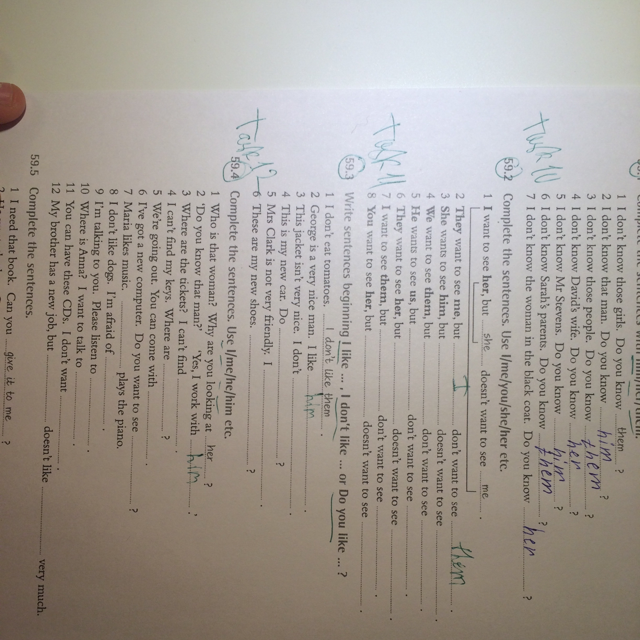 1 I don't know those girls. Do you know them ?
2 I don't know that man. Do you know him ?
3 I don't know those people. Do you know them ?
4 I don't know David's wife. Do you know her ?
5 I don't know Mr Stevens. Do you know him ?
6 I don't know Sarah's parents. Do you know them ?
7 I don't know the woman in the black coat. Do you know her ?
Task 10
59.2 Complete the sentences. Use I/me/you/she/her etc.
1 I want to see her, but she doesn't want to see me .
2 They want to see me, but I don't want to see them .
3 She wants to see him, but doesn't want to see .
4 We want to see them, but don't want to see .
5 He wants to see us, but don't want to see .
6 They want to see her, but doesn't want to see .
7 I want to see them, but don't want to see .
8 You want to see her, but doesn't want to see .
Task 11
59.3 Write sentences beginning I like ... , I don't like ... or Do you like ... ?
1 I don't eat tomatoes. I don't like them .
2 George is a very nice man. I like him .
3 This jacket isn't very nice. I don't .
4 This is my new car. Do ?
5 Mrs Clark is not very friendly. I .
6 These are my new shoes. ?
Task 12
59.4 Complete the sentences. Use I/me/he/him etc.
1 Who is that woman? Why are you looking at her ?
2 'Do you know that man?' 'Yes, I work with him .
3 Where are the tickets? I can't find .
4 I can't find my keys. Where are ?
5 We're going out. You can come with .
6 I've got a new computer. Do you want to see ?
7 Maria likes music. plays the piano.
8 I don't like dogs. I'm afraid of .
9 I'm talking to you. Please listen to .
10 Where is Anna? I want to talk to .
11 You can have these CDs. I don't want .
12 My brother has a new job, but doesn't like very much.
59.5 Complete the sentences.
1 I need that book. Can you give it to me ?